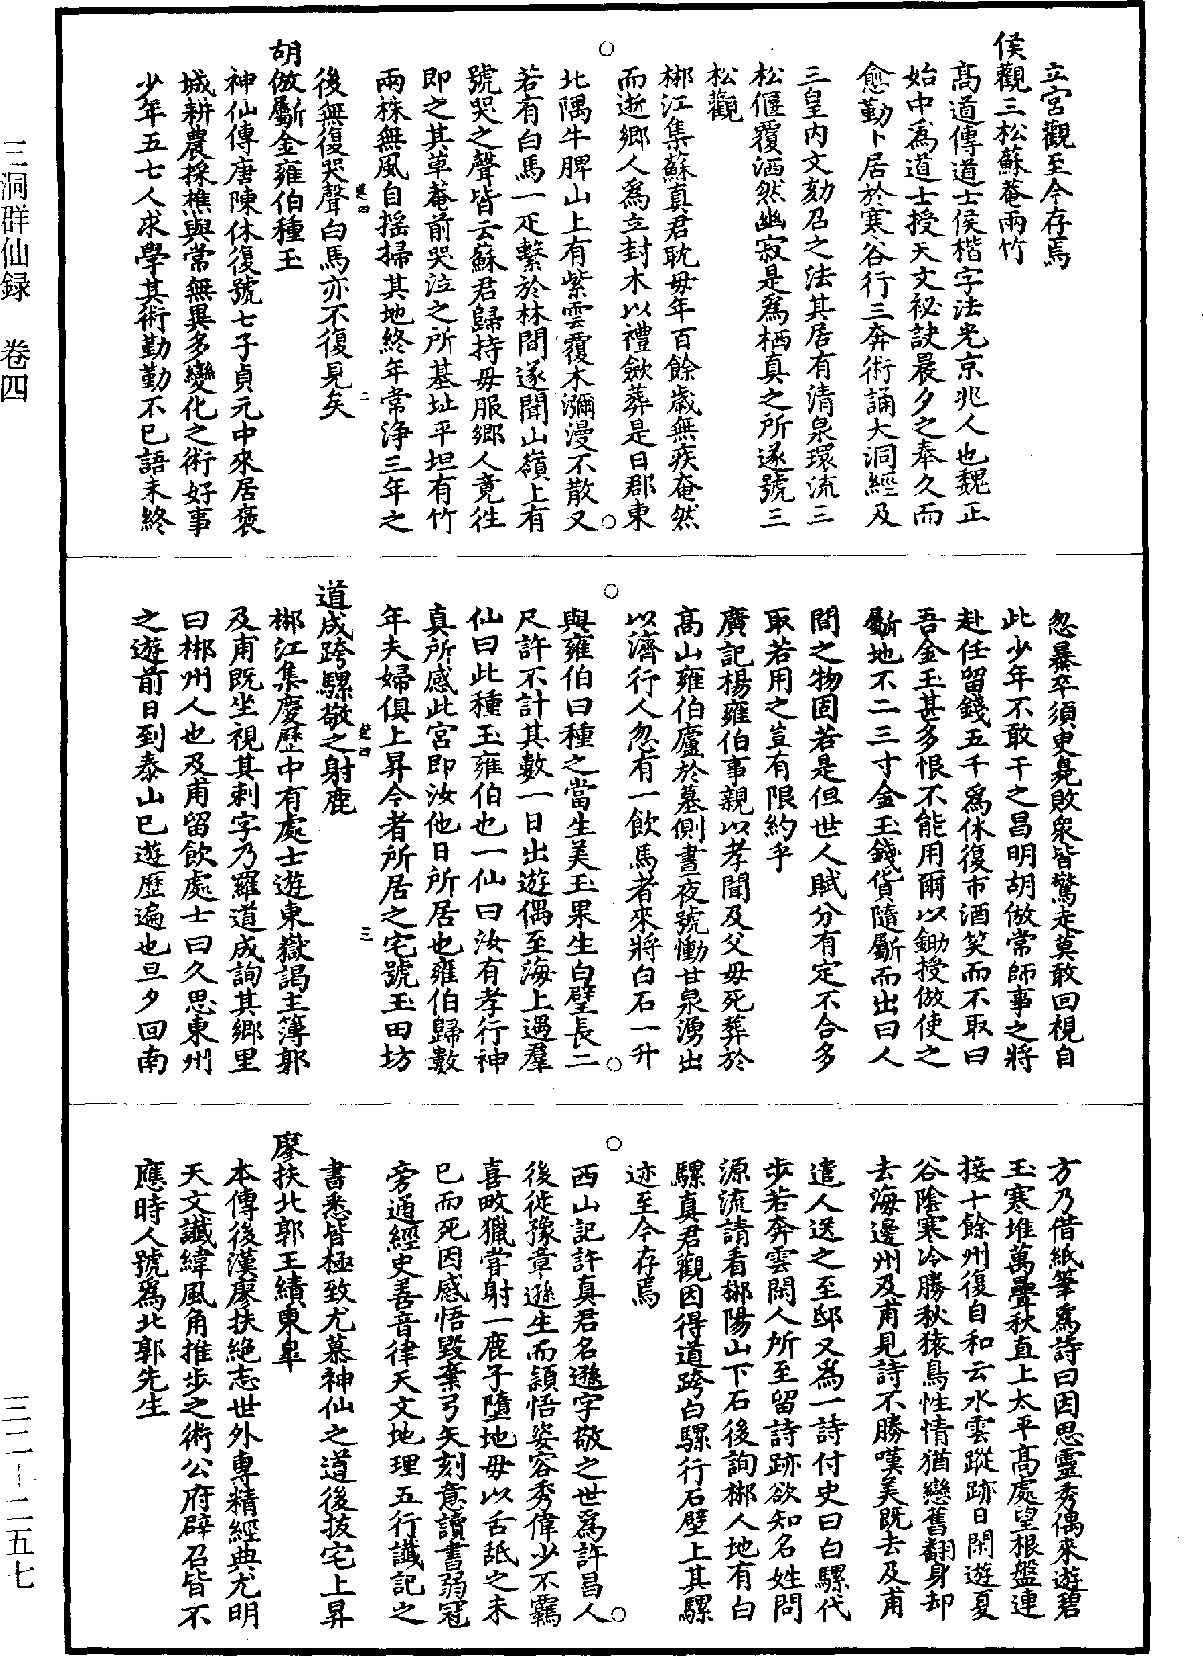 三洞群仙録　卷四
立宮觀至今存焉
侯觀三松蘇菴兩竹
高道傳道士侯楷字法光京兆人也魏正
始中爲道士授天文祕訣晨夕之奉久而
愈勤卜居於寒谷行三奔術誦大洞經及
三皇内文劾召之法其居有清泉環流三
松偃覆洒然幽寂是爲栖真之所遂號三
松觀
郴江集蘇真君耽母年百餘歲無疾奄然
而逝鄉人爲立封木以禮歛葬是日郡東
北隅牛脾山上有紫雲覆木瀰漫不散又
若有白馬一疋繫於林間遂聞山嶺上有
號哭之聲皆云蘇君歸持母服鄉人竟徃
即之其草菴前哭泣之所基址平坦有竹
兩株無風自揺掃其地終年常浄三年之
後無復哭聲白馬亦不復見矣
胡倣斸金雍伯種玉
神仙傳唐陳休復號七子貞元中來居褒
城耕農採樵與常無異多變化之術好事
少年五七人求學其術勤勤不已語未終
忽暴卒須臾臭敗衆皆驚走莫敢回視自
此少年不敢干之昌明胡倣常師事之將
赴任留錢五千爲休復市酒笑而不取曰
吾金玉甚多恨不能用爾以鋤授倣使之
斸地不二三寸金玉錢貨隨斸而出曰人
間之物固若是但世人賦分有定不合多
取若用之豈有限約乎
廣記楊雍伯事親以孝聞及父母死葬於
高山雍伯廬於墓側晝夜號慟甘泉湧出
以濟行人忽有一飲馬者來將白石一升
與雍伯曰種之當生美玉果生白璧長二
尺許不計其數一日出遊偶至海上遇羣
仙曰此種玉雍伯也一仙曰汝有孝行神
真所感此宮即汝他日所居也雍伯歸數
年夫婦俱上昇今者所居之宅號玉田坊
道成跨騾敬之射鹿
郴江集慶歷中有處士遊東嶽謁主簿郭
及甫既坐視其刺字乃羅道成詢其鄉里
曰郴州人也及甫留飲處士曰久思東州
之遊前日到泰山已遊歷遍也旦夕回南
方乃借紙筆爲詩曰因思靈秀偶來遊碧
玉寒堆萬疊秋直上太平高處望根盤連
接十餘州復自和云水雲蹤跡日閑遊夏
谷陰寒冷勝秋猿鳥性情猶戀舊翻身却
去海邊州及甫見詩不勝嘆美既去及甫
遣人送之至邸又爲一詩付史曰白騾代
歩若奔雲閑人所至留詩跡欲知名姓問
源流請看郴陽山下石後詢郴人地有白
騾真君觀因得道跨白騾行石壁上其騾
迹至今存焉
西山記許真君名遜字敬之世爲許昌人
後徙豫章遜生而頴悟姿容秀偉少不羈
喜畋獵嘗射一鹿子墮地母以舌舐之未
已而死因感悟毀棄弓矢刻意讀書弱冠
旁通經史善音律天文地理五行讖記之
書悉皆極致尤慕神仙之道後拔宅上昇
廖扶北郭王績東臯
本傳後漢廖扶絶志世外專精經典尤明
天文讖緯風角推步之術公府辟召皆不
應時人號爲北郭先生
三二－二五七